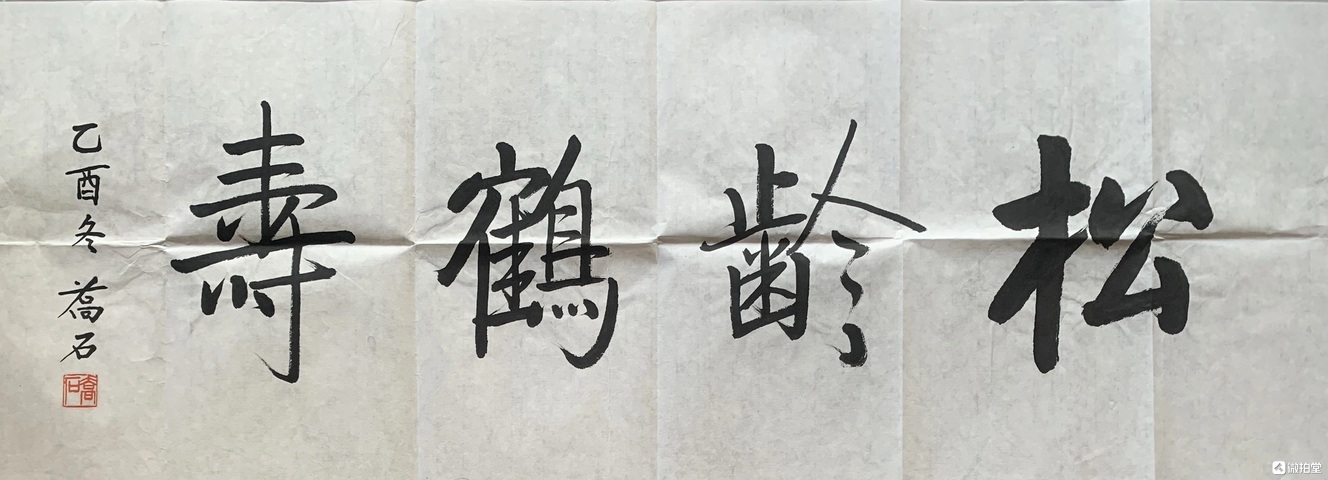 松齡鶴壽
乙酉冬 喬石
喬石
微拍堂